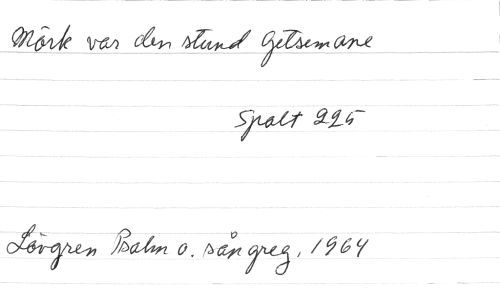 Mörk var den stund Getsemane
Spalt 225
Lövgren Psalm o. sångreg, 1964